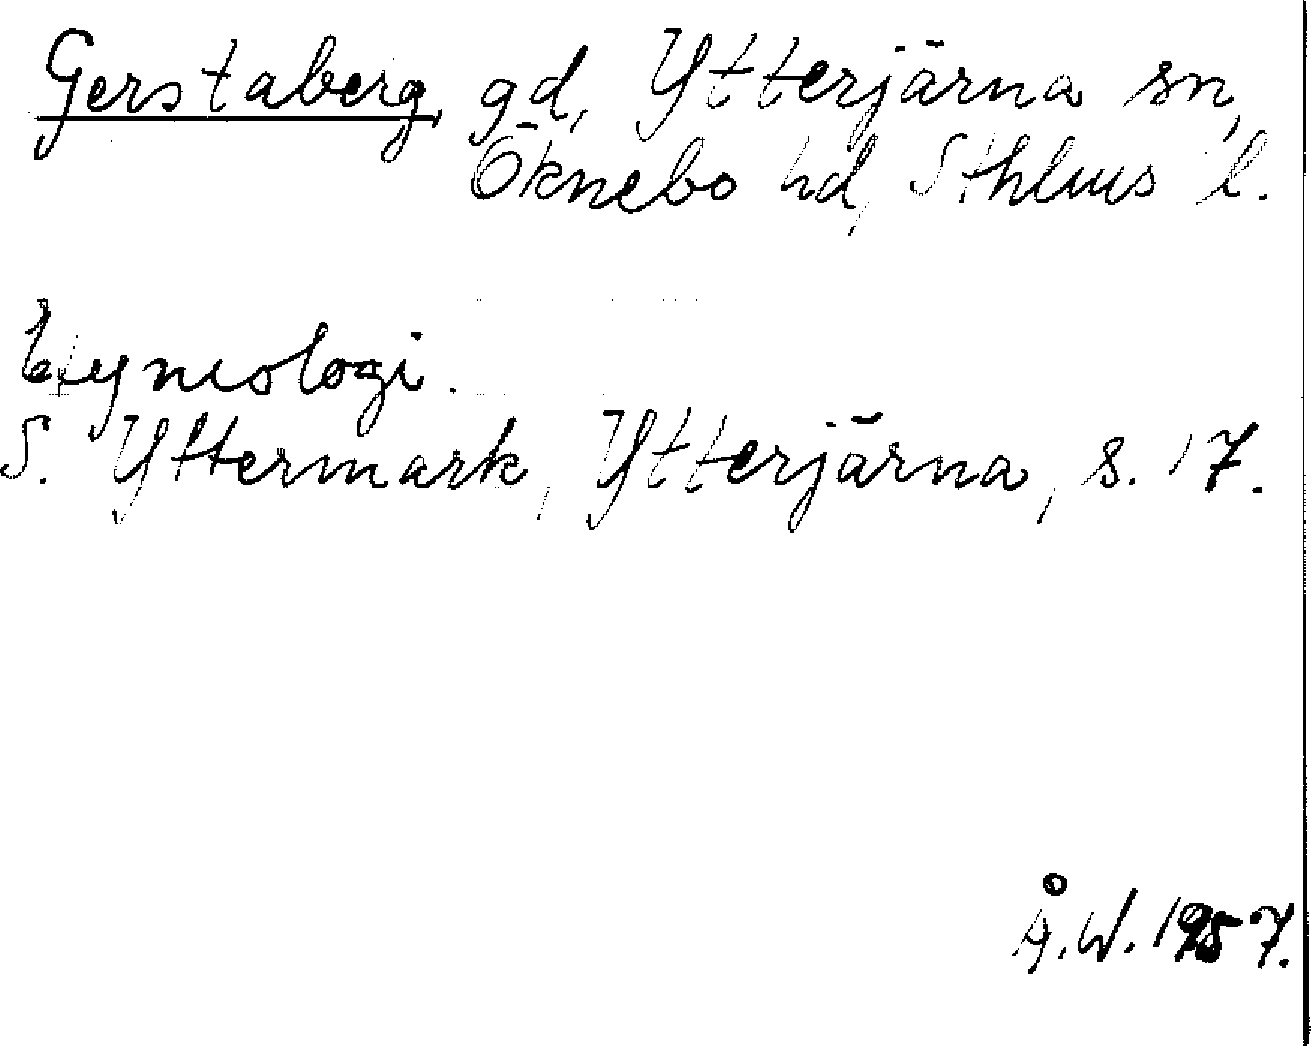 Gerstaberg, gd, Ytterjärna sn,
Öknebo hd, Sthlms l.
Etymologi.
S. Yttermark, Ytterjärna, s. 17.
Å.W. 1957.